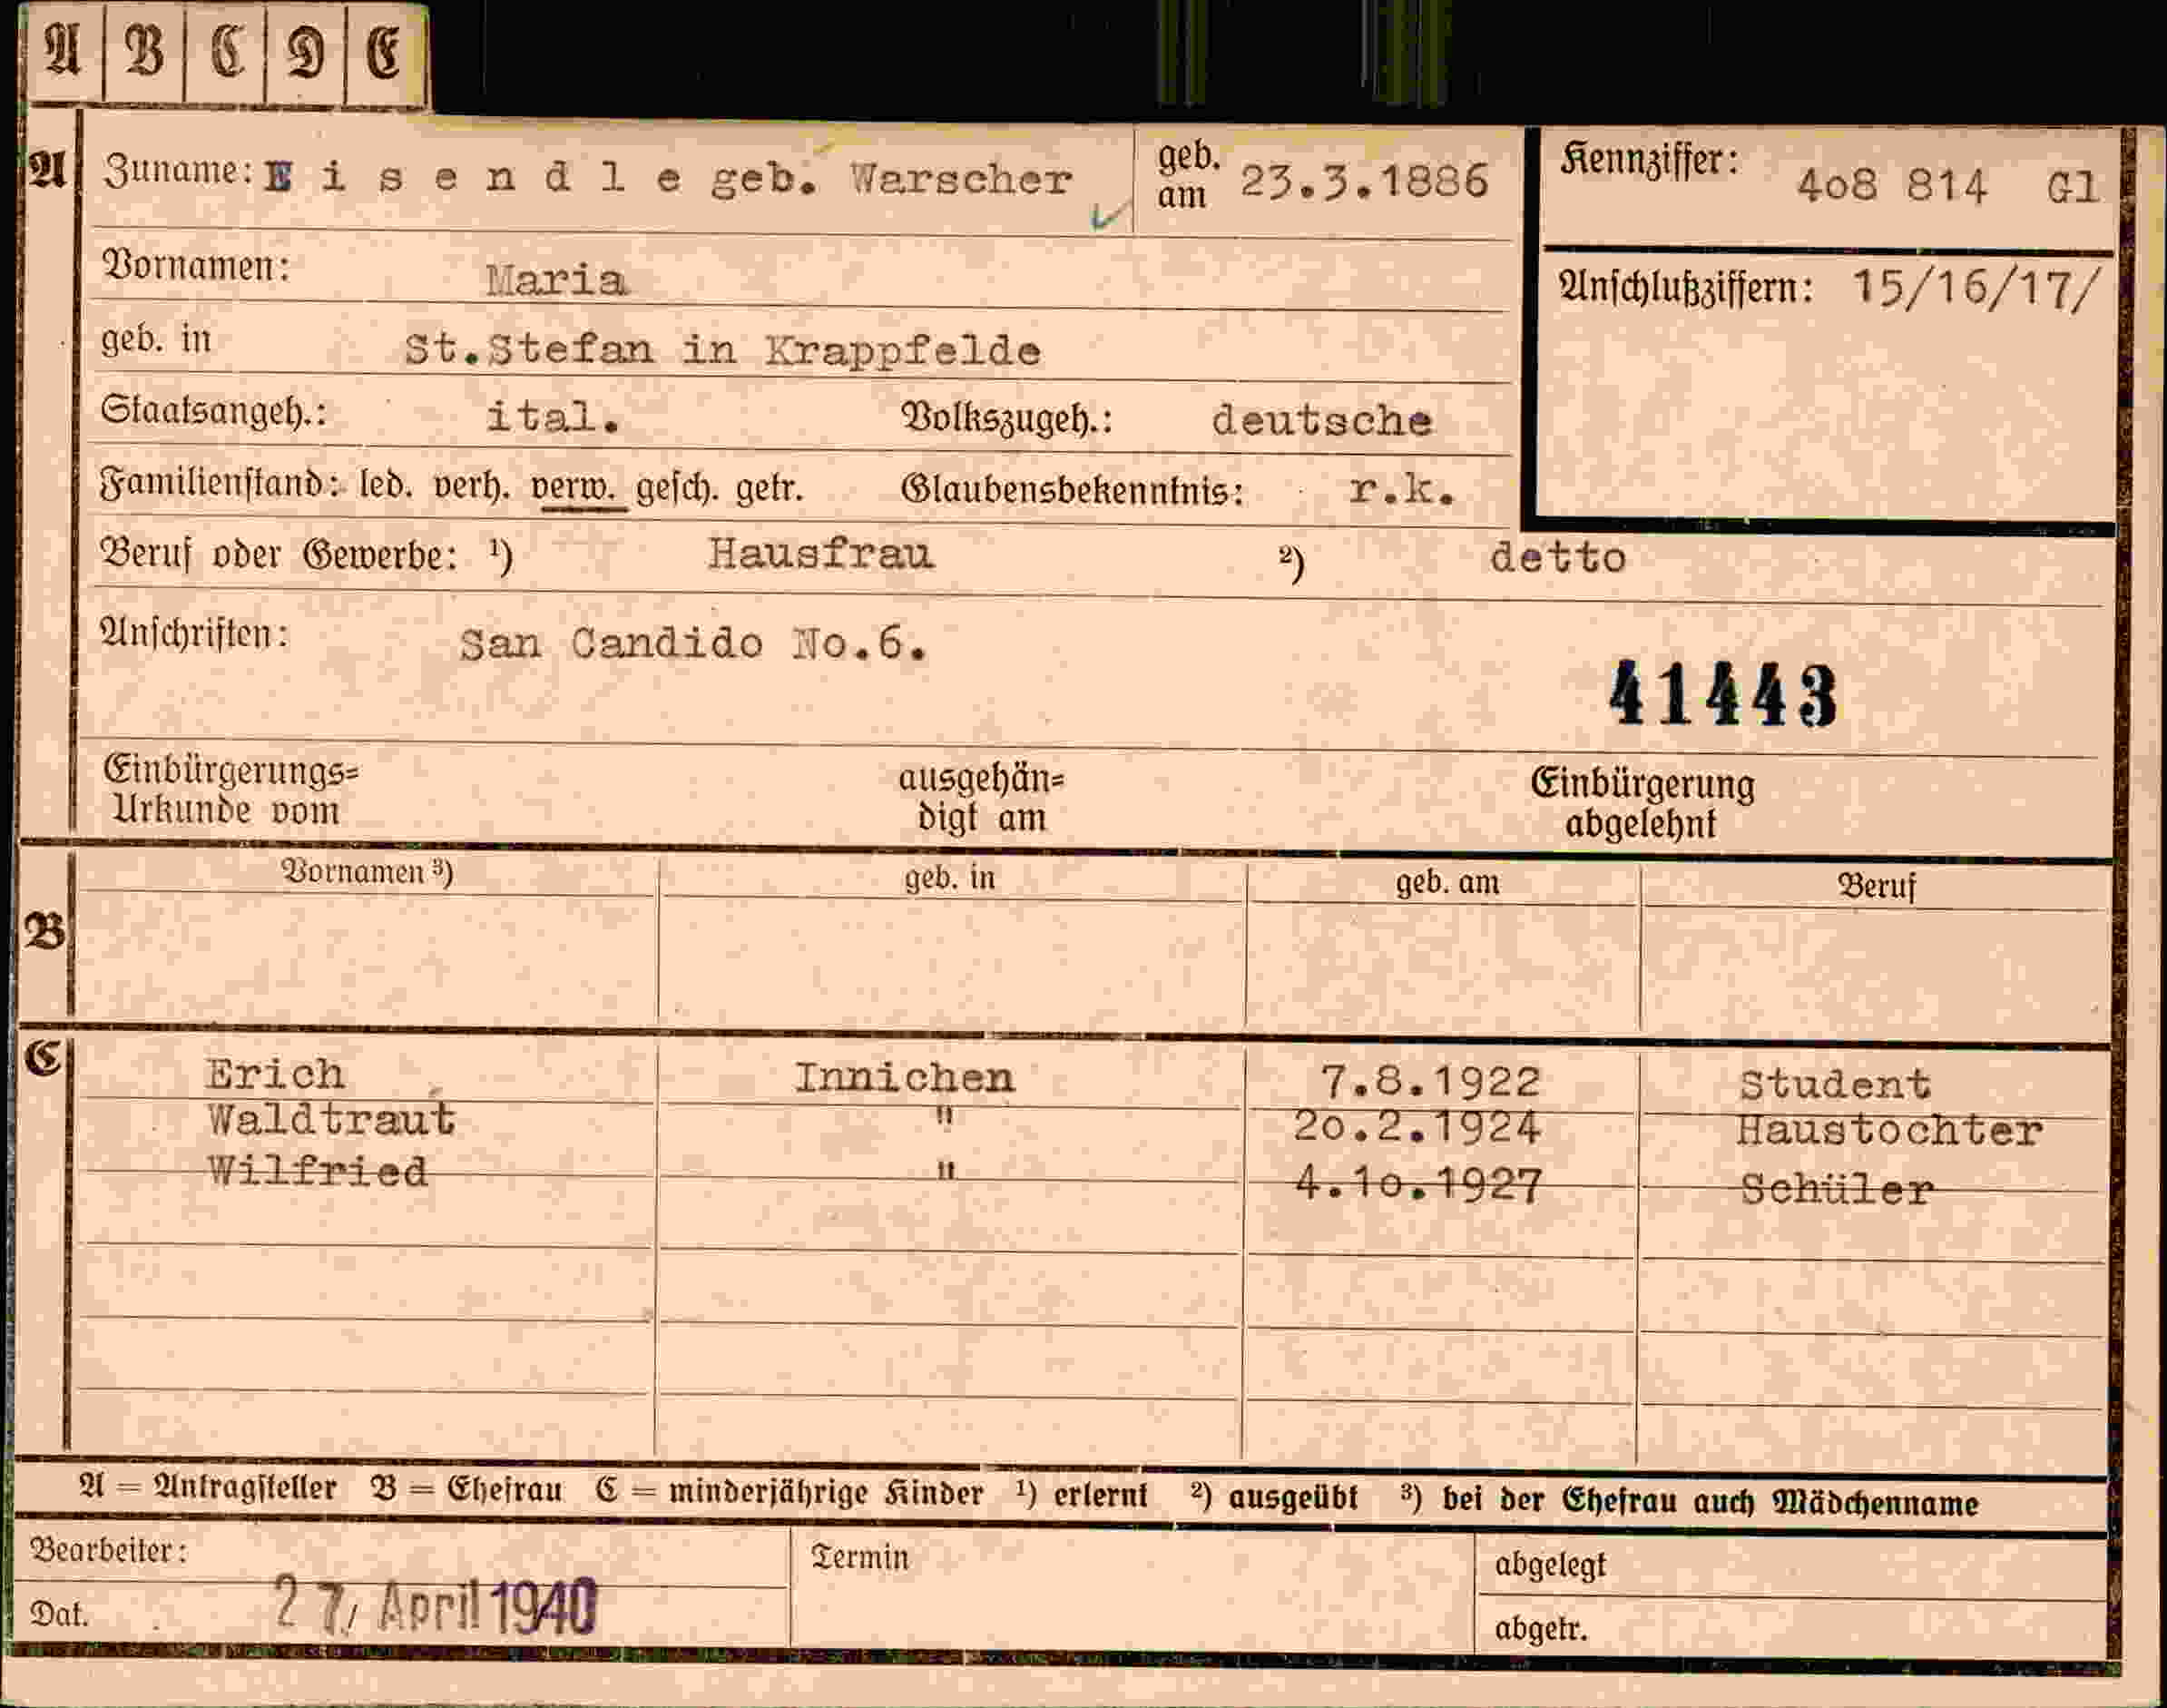 A B C D E
A Zuname: E i s e n d l e geb. Warscher geb. am 23.3.1886 Kennziffer: 4o8 814 Gl
Vornamen: Maria Anschlußziffern: 15/16/17/
geb. in St.Stefan in Krappfelde
Staatsangeh.: ital. Volkszugeh.: deutsche
Familienstand: led. verh. verw. gesch. getr. Glaubensbekenntnis: r.k.
Beruf oder Gewerbe: ¹) Hausfrau ²) detto
Anschriften: San Candido No.6.
41443
Einbürgerungs= ausgehän= Einbürgerung
Urkunde vom digt am abgelehnt
B Vornamen ³) geb. in geb. am Beruf
C Erich Innichen 7.8.1922 Student
Waldtraut " 2o.2.1924 Haustochter
Wilfried " 4.1o.1927 Schüler
A = Antragsteller B = Ehefrau C = minderjährige Kinder ¹) erlernt ²) ausgeübt ³) bei der Ehefrau auch Mädchenname
Bearbeiter: Termin abgelegt
Dat. 27. April 1940 abgetr.